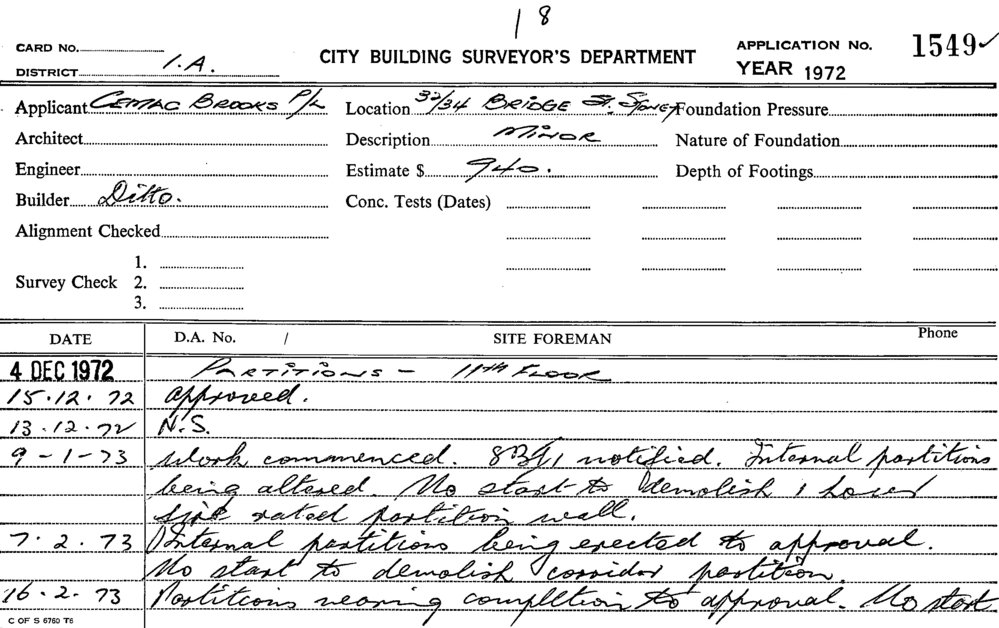 1 8
CARD No.
DISTRICT 1.A.
CITY BUILDING SURVEYOR'S DEPARTMENT
APPLICATION No. 1549 ✓
YEAR 1972
Applicant Cemac Brooks P/L Location 32/34 Bridge St. Sydney Foundation Pressure
Architect Description Minor Nature of Foundation
Engineer Estimate $ 940. Depth of Footings
Builder Ditto. Conc. Tests (Dates)
Alignment Checked
1.
Survey Check 2.
3.
DATE D.A. No. / SITE FOREMAN Phone
4 DEC 1972 Partitions – 11th Floor
15.12.72 approved.
13.12.72 N.S.
9-1-73 Work commenced. notified. Internal partitions
being altered. No start to demolish 1 hour
fire rated partition wall.
7.2.73 Internal partitions being erected to approval.
No start to demolish corridor partition.
16.2.73 Partitions nearing completion to approval. No start
C OF S 6760 T6